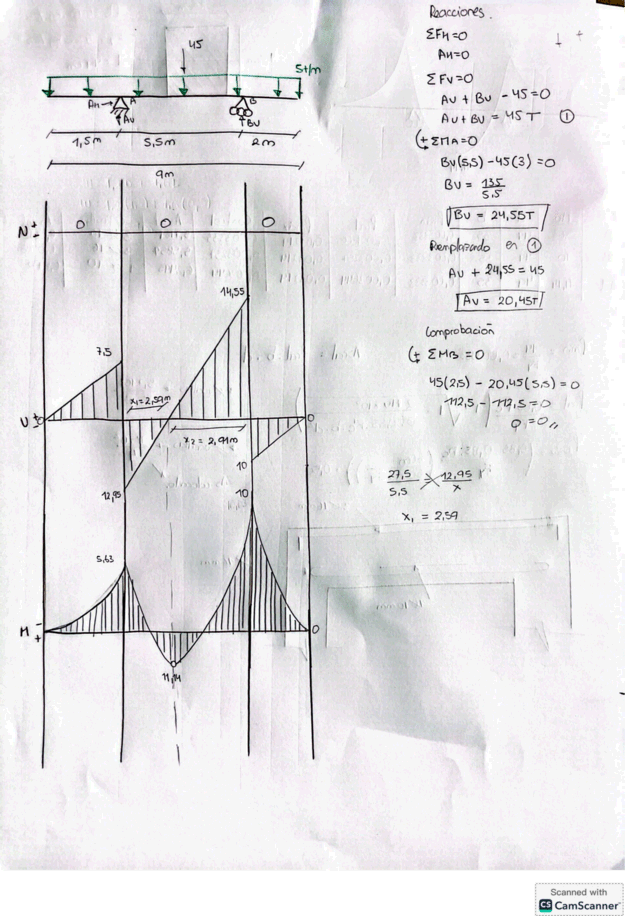 45
5t/m
AH
A
B
AV
BU
1,5m
5,5m
2m
9m
N
0
0
0
14,55
7,5
x1=2,59m
V
0
x2 = 2,91m
10
12,95
10
5,63
M
0
11,14
Reacciones.
ΣFH=0
AH=0
ΣFV=0
AV + BV - 45=0
AV + BV = 45T ①
ΣMA=0
BV(5,5) -45(3) =0
BV = 135
5,5
BV = 24,55T
Remplazado en ①
AV + 24,55 = 45
AV = 20,45T
Comprobación
ΣMB = 0
45(2,5) - 20,45(5,5) = 0
112,5 - 112,5 = 0
0 = 0,,
27,5 = 12,95
5,5 x
x1 = 2,59
Scanned with
CS CamScanner